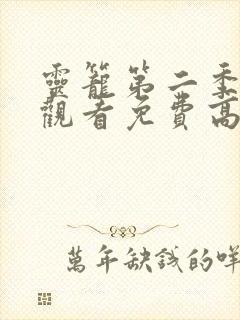 靈籠第二季
觀看免費高
萬年缺錢的咩